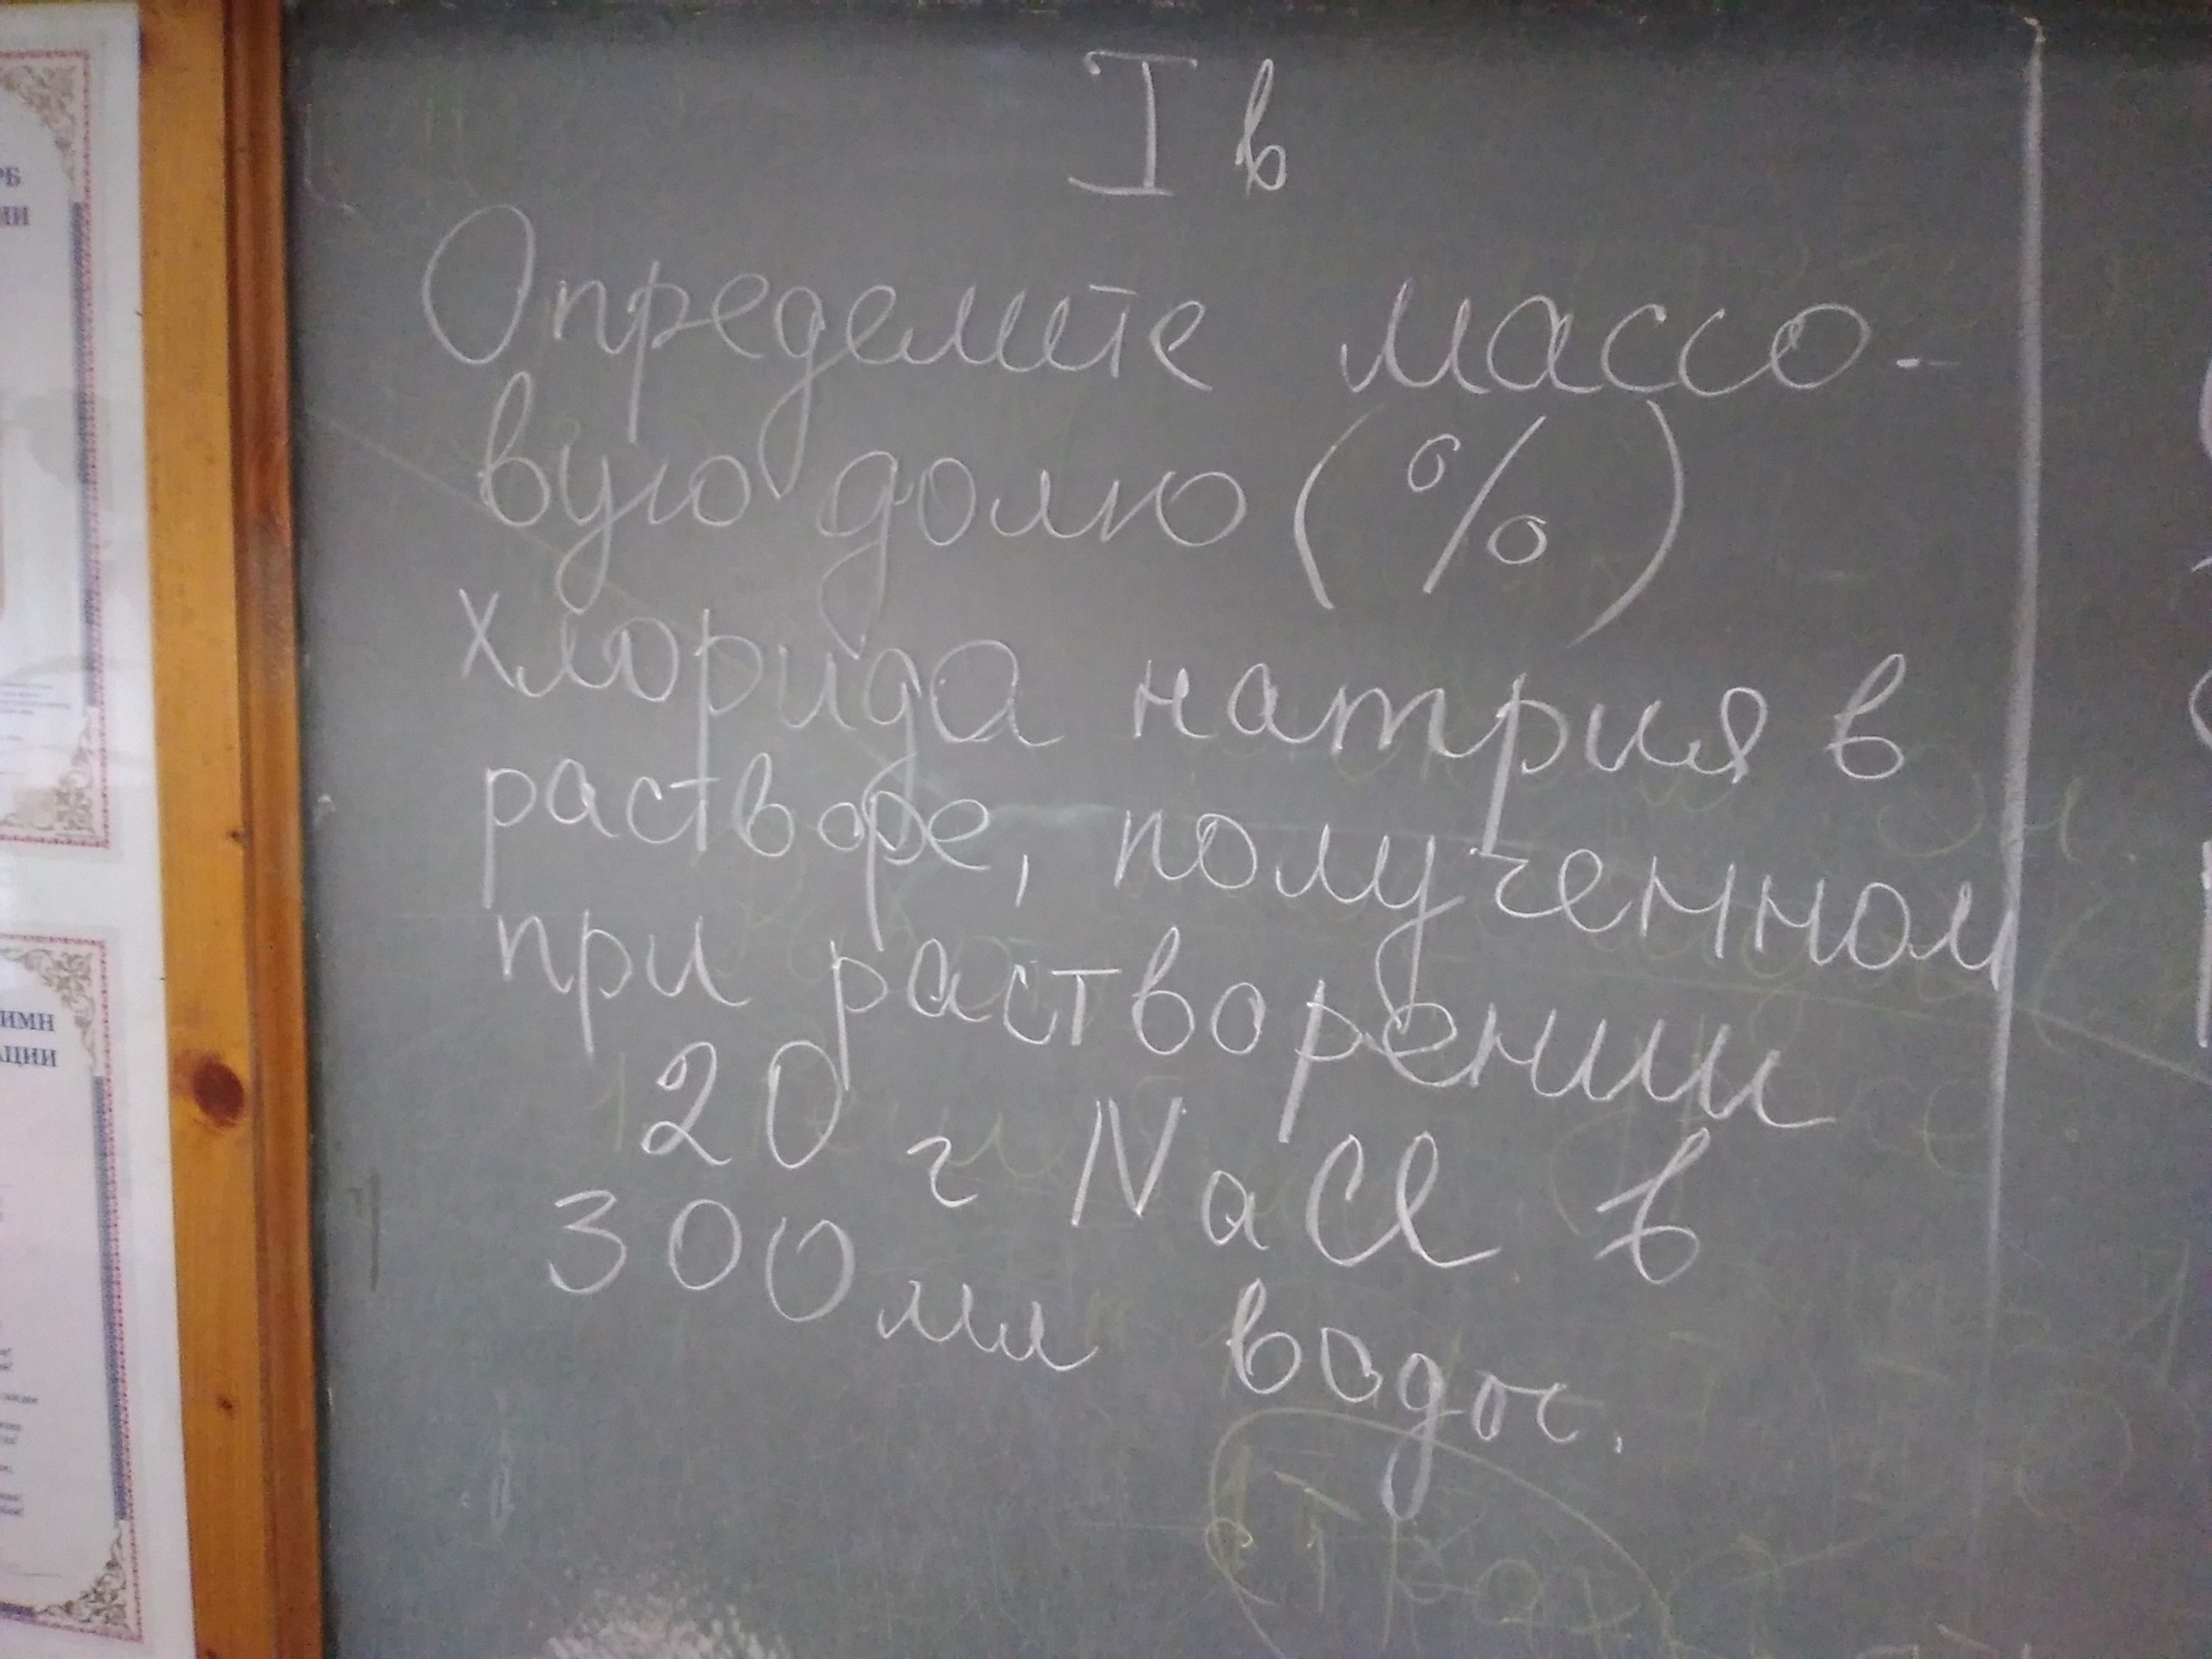 I в
Определите массо-
вую долю (%)
хлорида натрия в
растворе, полученном
при растворении
20 г NaCl в
300 мл воды.
РБ
ИИ
ИМН
АЦИИ